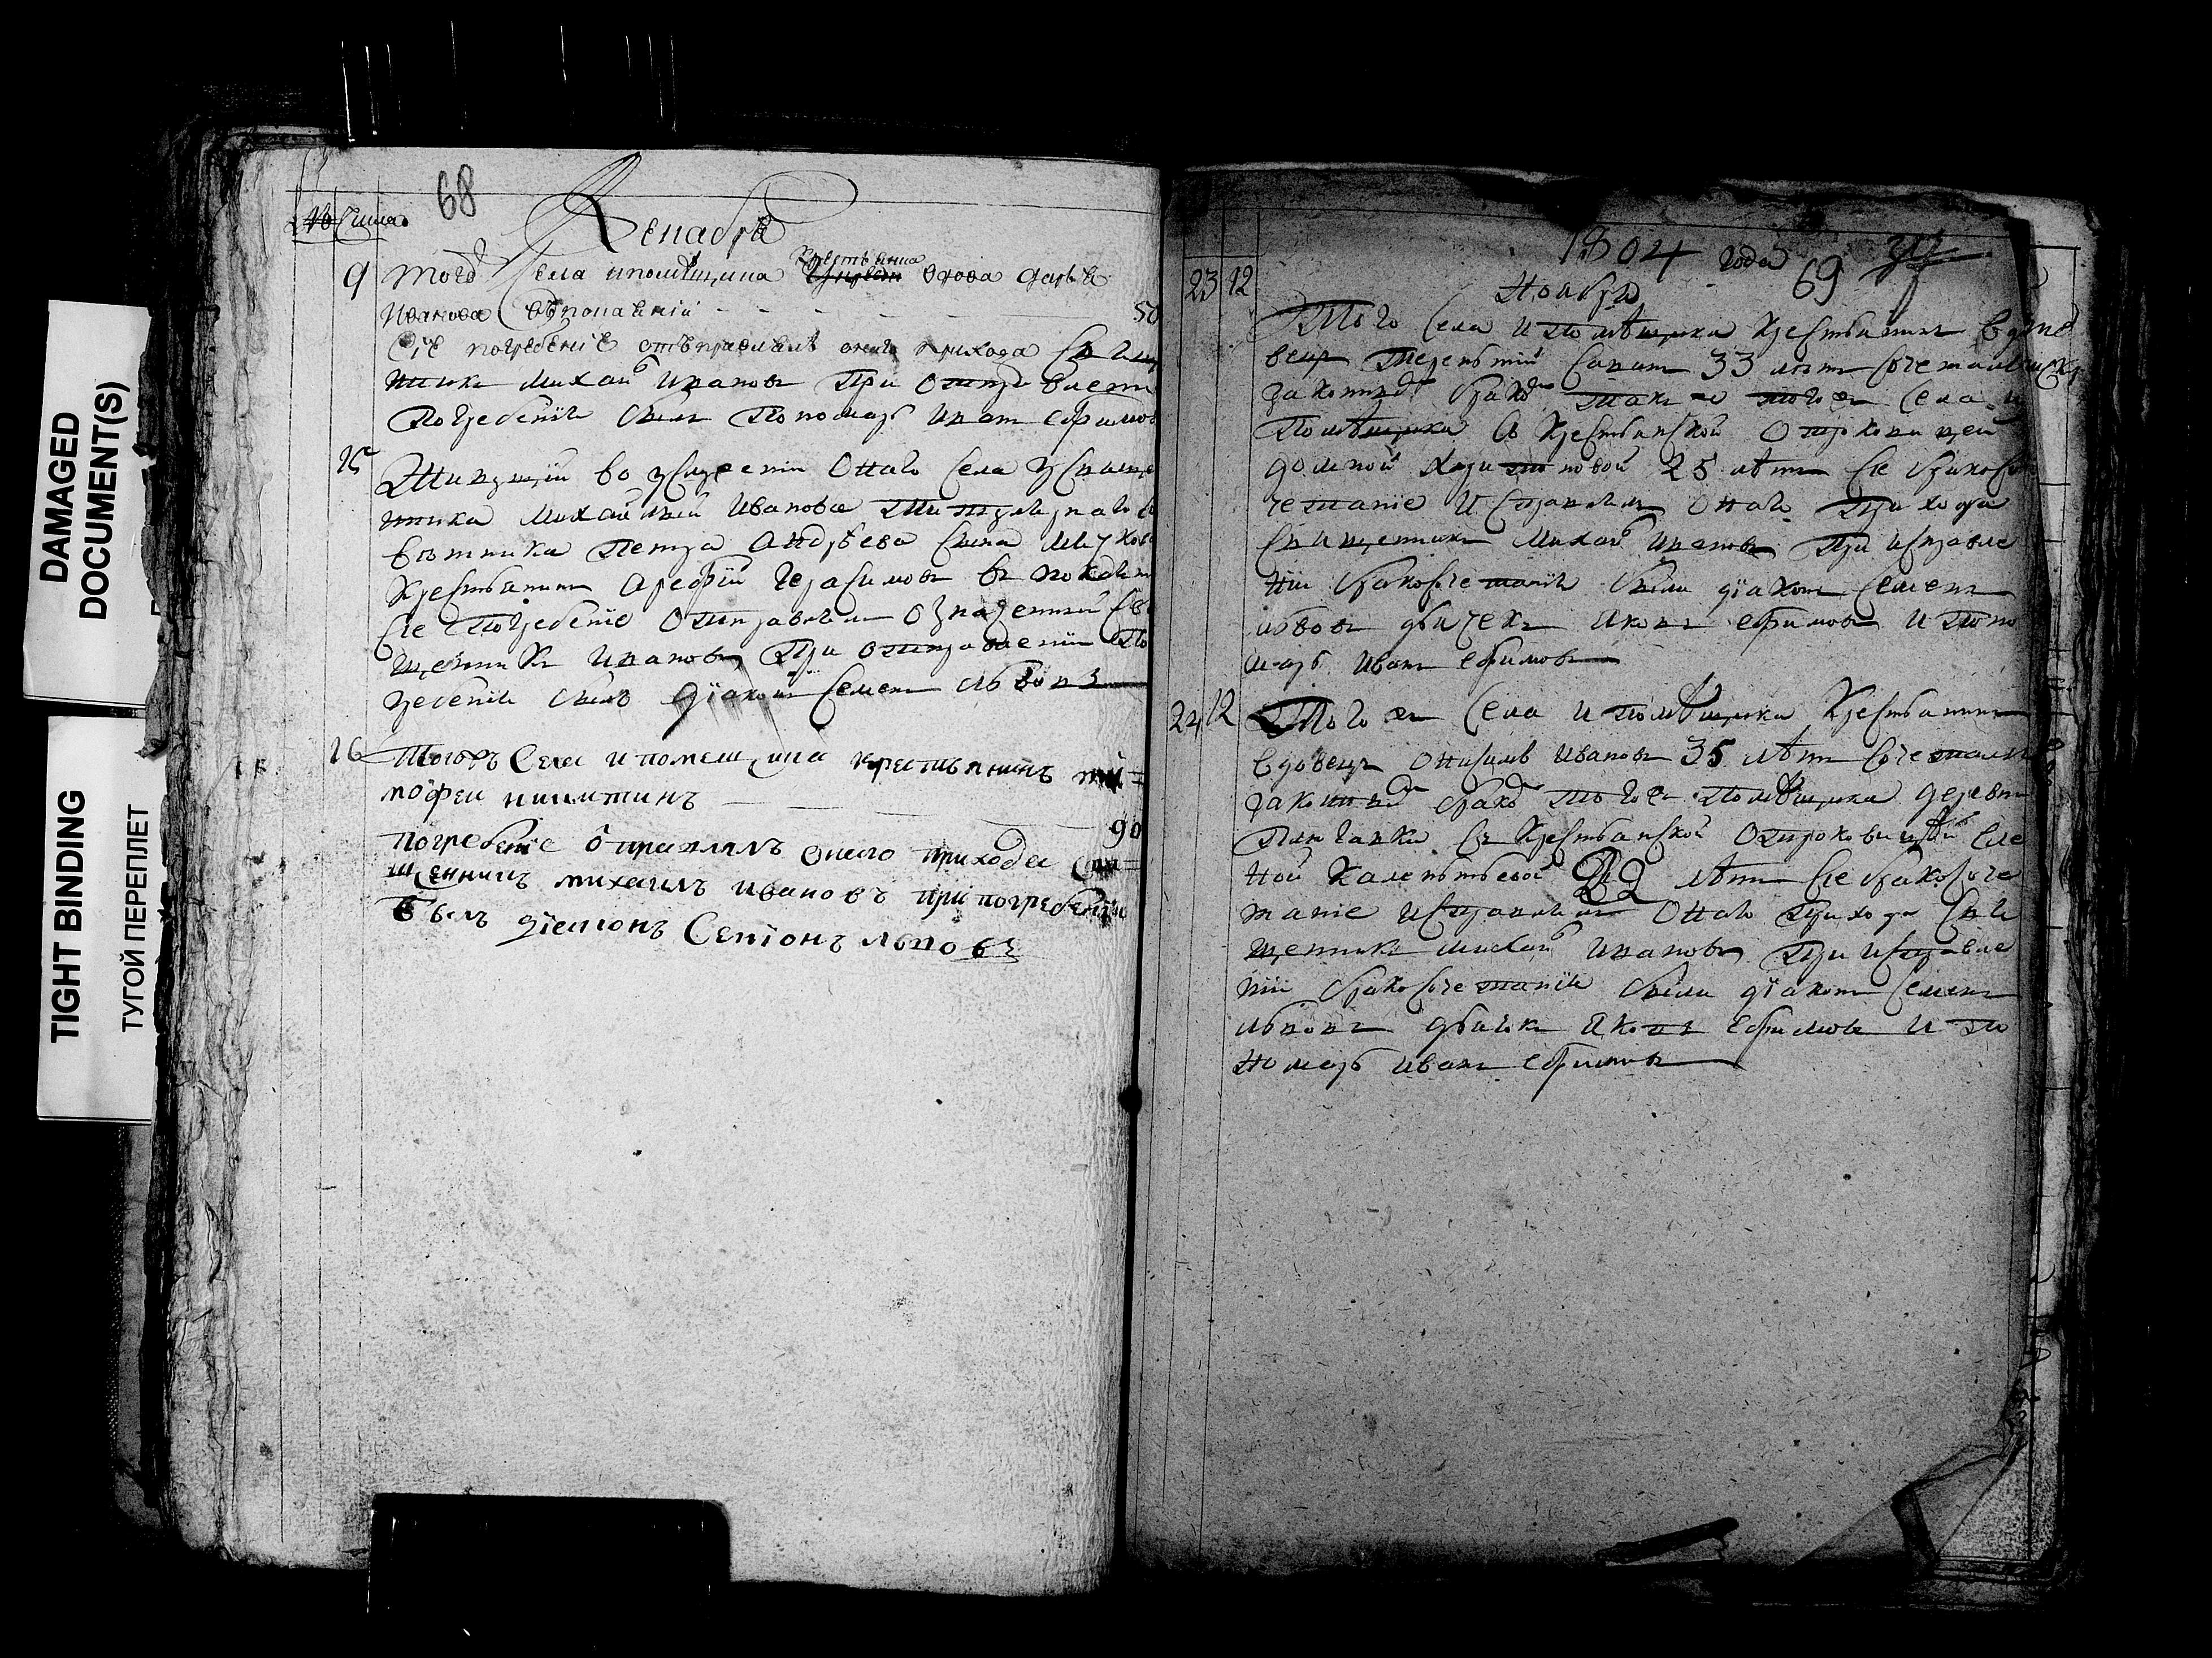 DAMAGED
DOCUMENT(S)
TIGHT BINDING
ТУГОЙ ПЕРЕПЛЕТ
68
Декабрь
№ Числа
9 того села и помѣщика крестьянина вдова дарья
Иванова 50
Сіе погребеніе отъправлялъ онаго прихода Свяще
нникъ Михаил Ивановъ При Отправлени
Погребенія былъ Пономарь Иван ефимов
15 Живущий во услужении Онаго Села у Священ
ника Михаила Иванова
Петра Андрѣева Сына
Крестьянинъ Арефий Герасимовъ
Сие Погребение Отправлялъ Означенный Свя
щенникъ Ивановъ При отправлении По
гребения былъ диаконъ Семенъ Львовъ
16 Тогожъ Села и помещика крестьянинъ ти=
мофеи никитинъ 90
погребение отправлялъ онаго прихода Свя=
щенникъ михаилъ ивановъ при погребении
былъ диаконъ Семионъ львовъ
1804 года 69
Ноября
23 12 Того Села И Помѣщика Крестьянинъ вдо
вецъ Терентий Савин 33 лѣтъ Сочетался
законнымъ бракомъ такъ же того ж Села и
Помѣщика С Крестьянской Отроковицей
Домной Харитоновой 25 лѣтъ Сие бракосо
четание Исправлялъ Онаго Прихода
Священникъ Михаил Ивановъ При исправле
нии бракосочетания были диаконъ Семенъ
львовъ дьячекъ Яковъ ефимовъ И Поно
марь Иванъ ефимовъ
24 12 Того ж Села И Помѣщика Крестьянинъ
вдовецъ Онисимъ Ивановъ 35 лѣтъ Сочетался
законнымъ бракомъ того ж Помѣщика деревни
Съ Крестьянской Отроковицей Еле
ной 22 лѣтъ Сие бракосоче
тание Исправлялъ Онаго Прихода Свя
щенникъ Михаил Ивановъ При исправле
нии бракосочетания были диаконъ Семенъ
львовъ дьячекъ Яковъ Ефимовъ И по
номарь Иванъ Ефимовъ